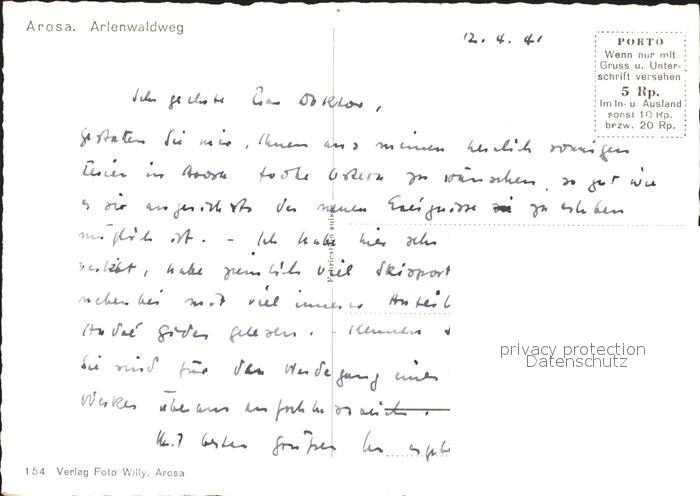 Arosa. Arlenwaldweg
12. 4. 41
PORTO
Wenn nur mit
Gruss u. Unter-
schrift versehen
5 Rp.
Im In- u. Ausland
sonst 10 Rp.
bezw. 20 Rp.
Sehr geehrte Frau Doktor,
gestatten Sie mir, Ihnen aus meinen herrlich sonnigen
Ferien in Arosa frohe Ostern zu wünschen, so gut wie
es sie angesichts der neuen Ereignisse zu erleben
möglich ist. – Ich habe hier sehr
verlebt, habe ziemlich viel Skisport
nebenbei mit viel innerer Anteil
André Gides gelesen. – Kennen
Sie sind für den Werdegang eines
Werkes überaus aufschlussreich.
Mit besten Grüßen Ihr ergeb
Fabrication suisse
privacy protection
Datenschutz
154 Verlag Foto Willy, Arosa